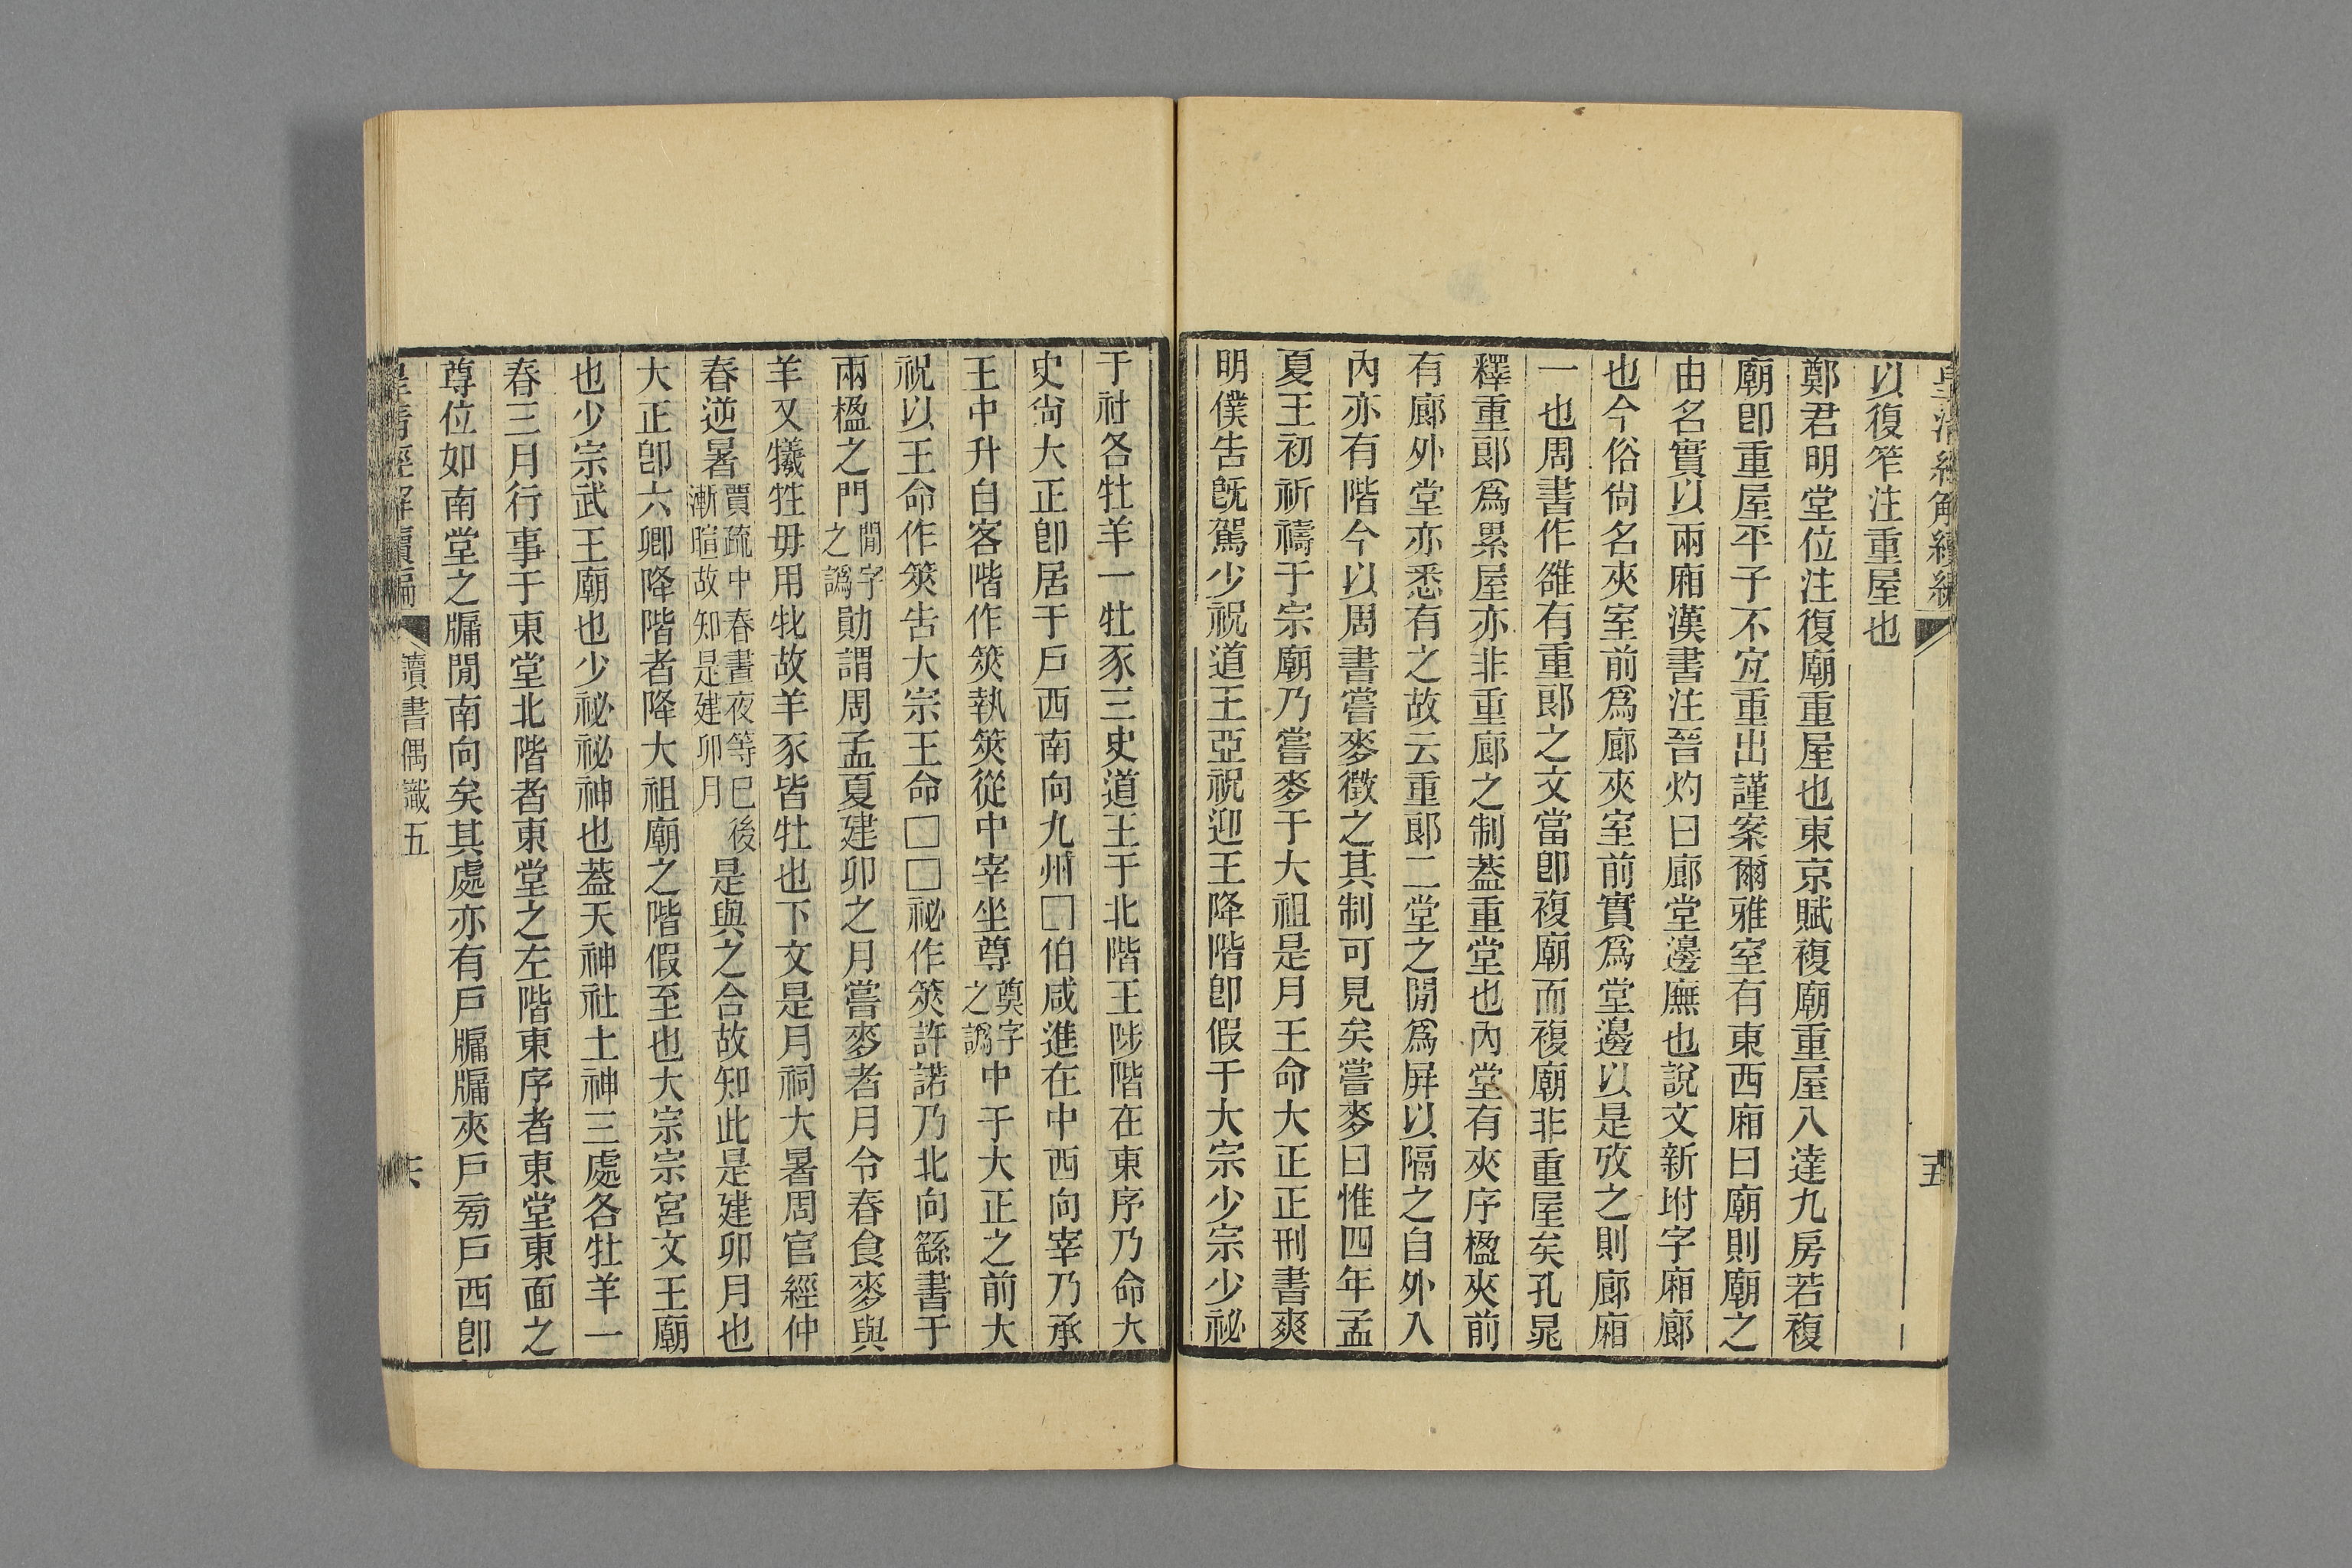 皇清經解續編
五
以復笮注重屋也
鄭君明堂位注復廟重屋也東京賦複廟重屋八達九房若複
廟卽重屋平子不宜重出謹案爾雅室有東西廂曰廟則廟之
由名實以兩廂漢書注晉灼曰廊堂邊廡也說文新坿字廂廊
也今俗尙名夾室前爲廊夾室前實爲堂邊以是攷之則廊廂
一也周書作雒有重郞之文當卽複廟而複廟非重屋矣孔晁
釋重郞爲累屋亦非重廊之制蓋重堂也內堂有夾序楹夾前
有廊外堂亦悉有之故云重郞二堂之閒爲屏以隔之自外入
內亦有階今以周書嘗麥徵之其制可見矣嘗麥曰惟四年孟
夏王初祈禱于宗廟乃嘗麥于大祖是月王命大正正刑書爽
明僕告旣駕少祝道王亞祝迎王降階卽假于大宗少宗少祕
于社各牡羊一牡豕三史道王于北階王陟階在東序乃命大
史尙大正卽居于戶西南向九州□伯咸進在中西向宰乃承
王中升自客階作筴執筴從中宰坐尊奠字之譌中于大正之前大
祝以王命作筴告大宗王命□□祕作筴許諾乃北向繇書于
兩楹之門閒字之譌勛謂周孟夏建卯之月嘗麥者月令春食麥與
羊又犧牲毋用牝故羊豕皆牡也下文是月祠大暑周官經仲
春逆暑賈疏中春晝夜等已後漸暄故知是建卯月是與之合故知此是建卯月也
大正卽六卿降階者降大祖廟之階假至也大宗宗宮文王廟
也少宗武王廟也少祕祕神也蓋天神社土神三處各牡羊一
春三月行事于東堂北階者東堂之左階東序者東堂東面之
尊位如南堂之牖閒南向矣其處亦有戶牖牖夾戶旁戶西卽
皇清經解續編
讀書偶識五
六